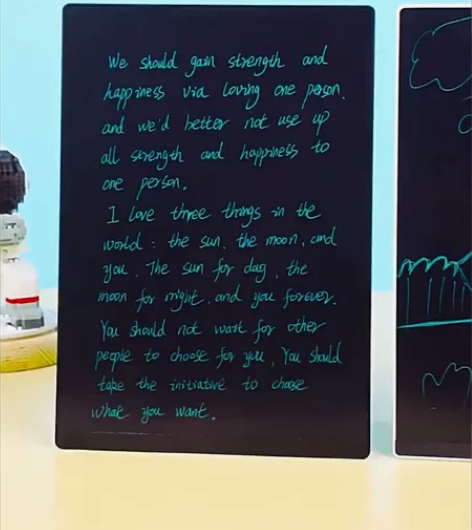 We should gain strength and
happiness via loving one person.
and we'd better not use up
all strength and happiness to
one person.
I love three things in the
world : the sun, the moon, and
you. The sun for day, the
moon for night, and you forever.
You should not wait for other
people to choose for you, You should
take the initiative to choose
what you want.